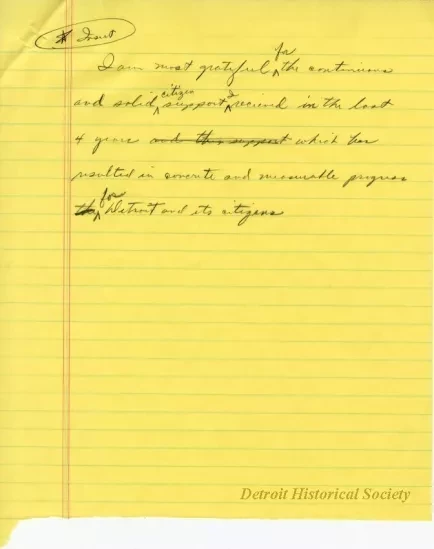 * Insert
I am most grateful for the continuous
and solid citizen support I received in the last
4 years and this support which has
resulted in concrete and measurable progress
for Detroit and its citizens
Detroit Historical Society